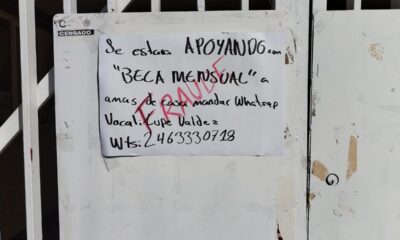 CENSADO
Se estara APOYANDO con
"BECA MENSUAL" a
amas de casa mandar Whatsap
Vocal: Lupe Valdez
Wts: 2463330718
FRAUDE